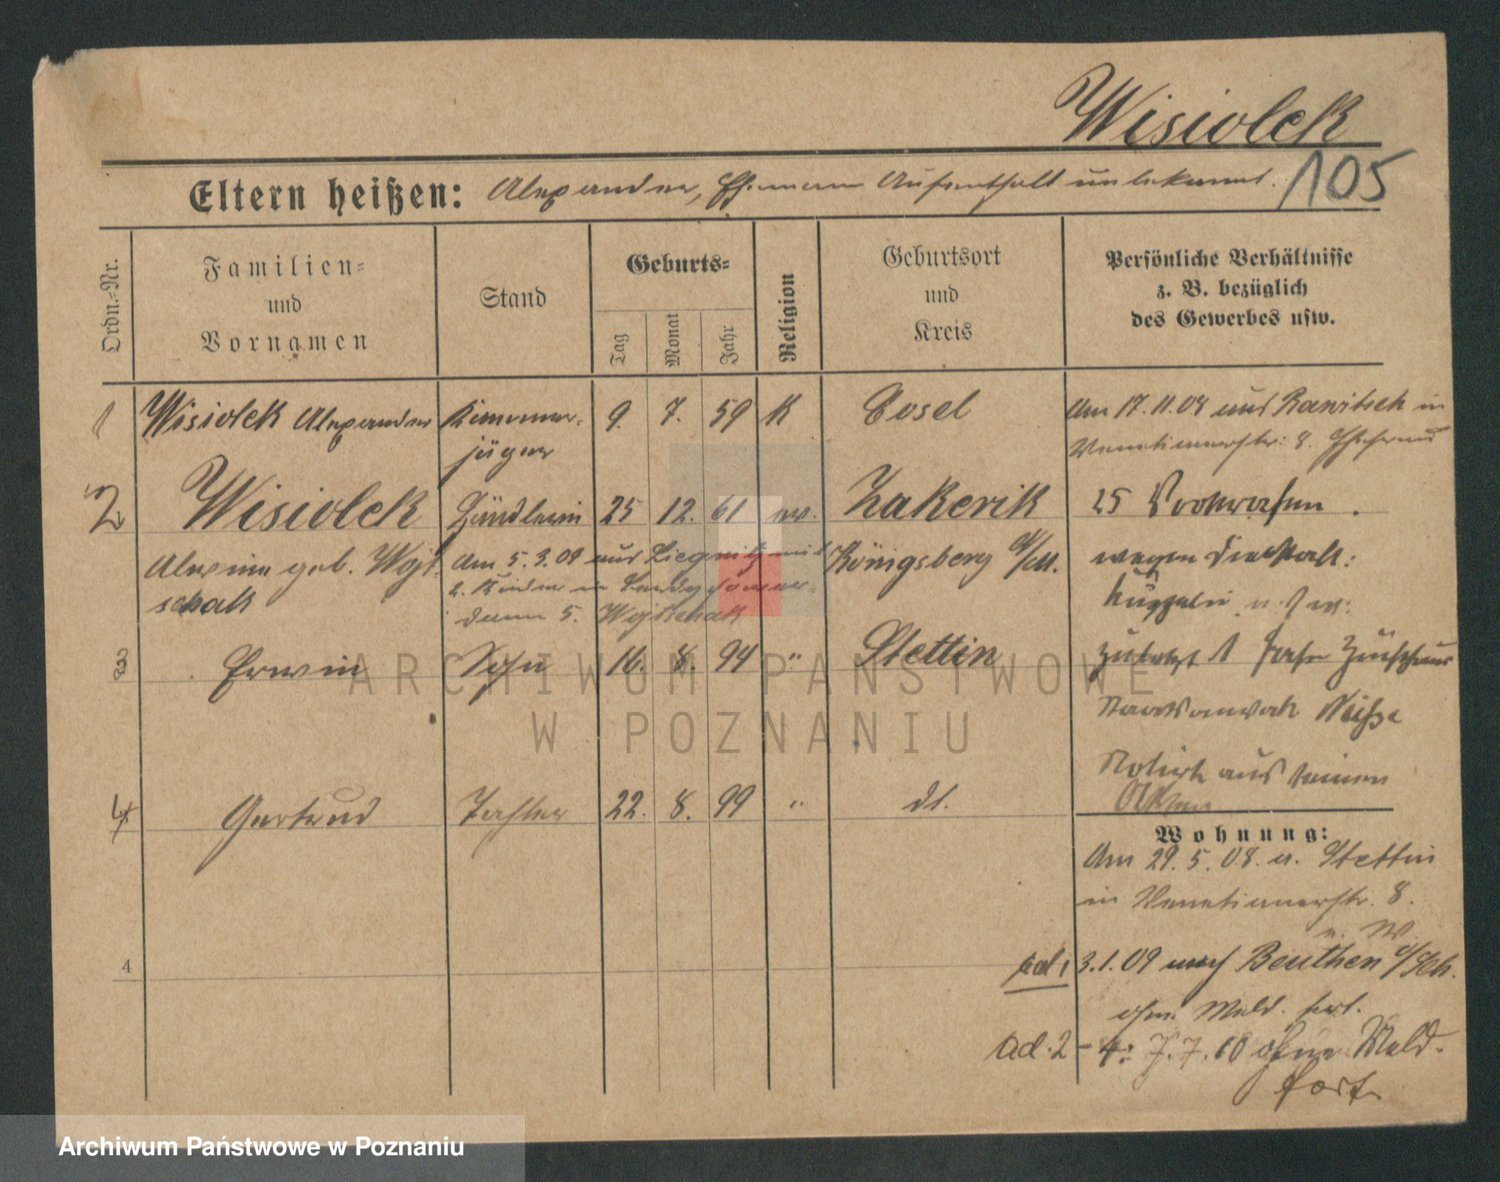 Wisiolek
105
Eltern heißen: Alexander, Ehemann Aufenthalt unbekannt.
Ordn.-Nr.
Familien- und Vornamen
Stand
Geburts-
Tag
Monat
Jahr
Religion
Geburtsort und Kreis
Persönliche Verhältnisse
z. B. bezüglich
des Gewerbes usw.
1 Wisiolek Alexander Kammer- 9. 7. 59 K Cosel Am 17.11.08 aus Rawitsch in
jäger Venetianerstr. 8.
2 Wisiolek Händlerin 25 12. 61 ev. Zakerik 25 Vorstrafen.
Alwine geb. Wojt- Am 5.3.09 aus Liegnitz mit Königsberg N/M. wegen Diebstahl:
schak 2. Kinder in
dann 5. Wojtschak Kuppelei u.s.w.
3 Erwin Sohn 16. 8. 94 " Stettin zuletzt 1 Jahr Zuchthaus
Staatsanwalt Neiße
Notiert aus seinen
Akten
4 Gertrud Tochter 22. 8. 99 " dt.
Wohnung:
Am 29.5.08. a. Stettin
in Venetianerstr. 8.
n. W.
4
ad 1 3.1.09 nach Beuthen O/Sch.
ohne Meld. fort.
ad. 2-4: 7.7.10 ohne Meld.
fort.
ARCHIWUM PAŃSTWOWE
W POZNANIU
Archiwum Państwowe w Poznaniu